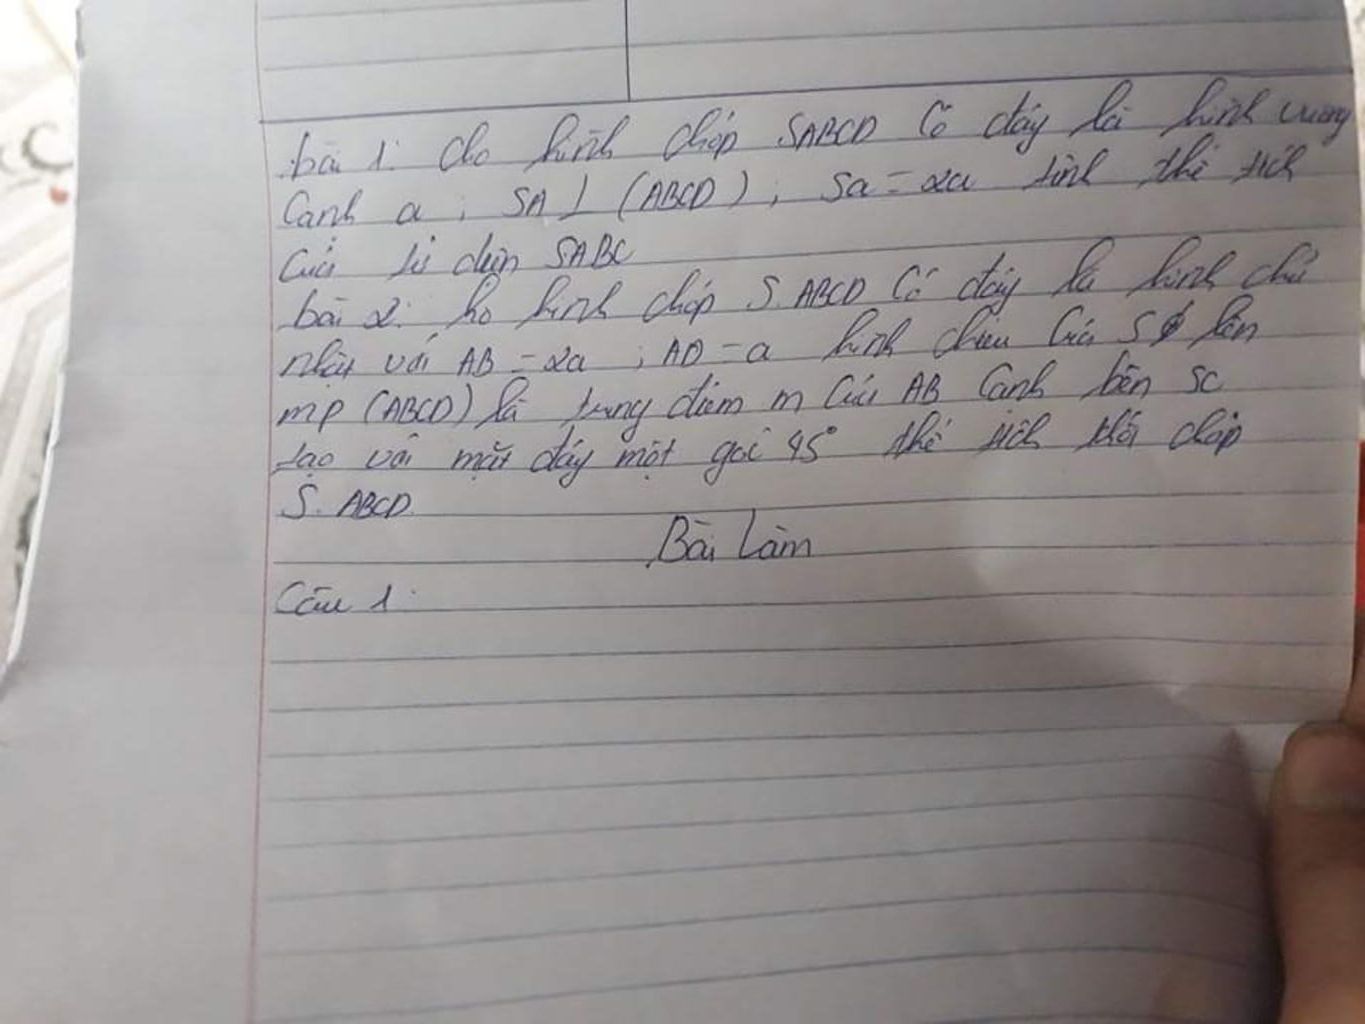 bài 1: Cho hình chóp SABCD Có đáy là hình vuông
Cạnh a ; SA ⊥ (ABCD) ; Sa = 2a tính thể tích
Của tứ diện SABC
bài 2: ho hình chóp S.ABCD Có đáy là hình chữ
nhật với AB = 2a ; AD = a hình chiếu Của S lên
mp (ABCD) là trung điểm m Của AB Cạnh bên SC
tạo với mặt đáy một góc 45° thể tích khối chóp
S. ABCD.
Bài Làm
Câu 1: